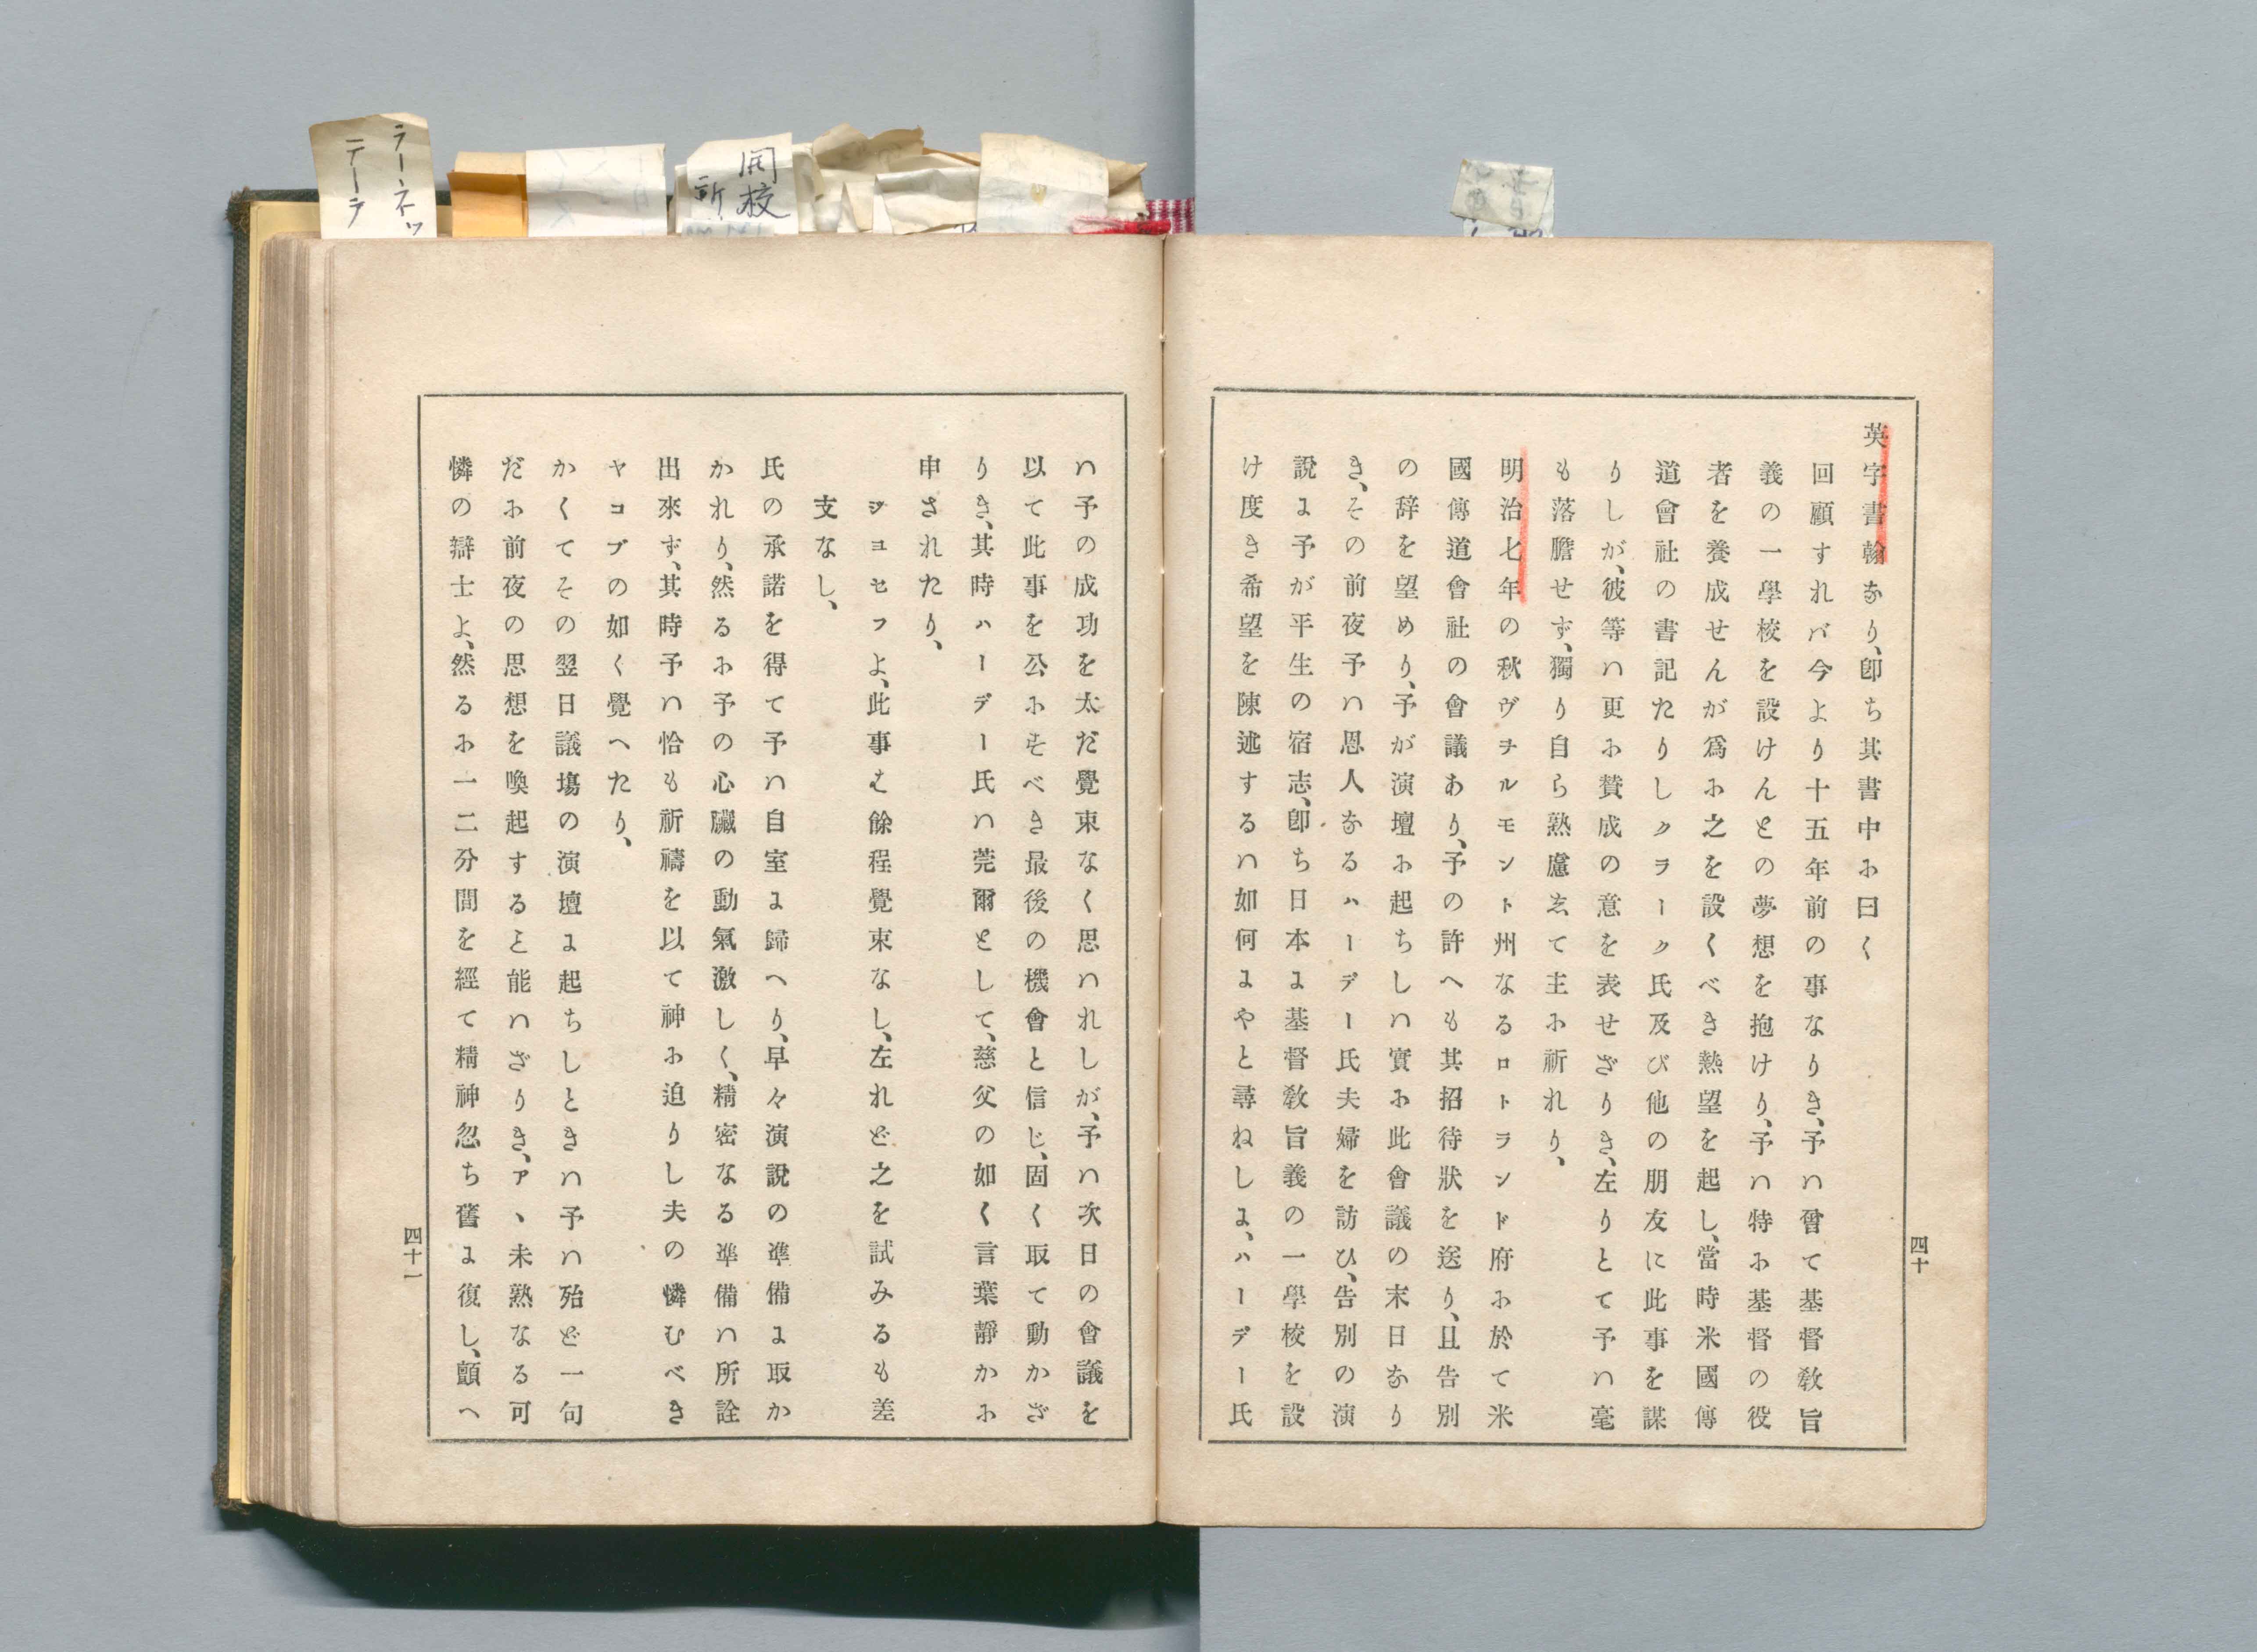 英字書翰なり、卽ち其書中に曰く
回顧すれバ今より十五年前の事なりき、予ハ曾て基督敎旨
義の一學校を設けんとの夢想を抱けり、予ハ特に基督の役
者を養成せんが爲に之を設くべき熱望を起し、當時米國傳
道會社の書記たりしクラーク氏及び他の朋友に此事を謀
りしが、彼等ハ更に賛成の意を表せざりき、左りとて予ハ毫
も落膽せず、獨り自ら熟慮して主に祈れり、
明治七年の秋ヴチルモント州なるロトランド府に於て米
國傳道會社の會議あり、予の許へも其招待狀を送り、且告別
の辞を望めり、予が演壇に起ちしハ實に此會議の末日なり
き、その前夜予ハ恩人なるハーデー氏夫婦を訪ひ、告別の演
說に予が平生の宿志、卽ち日本に基督敎旨義の一學校を設
け度き希望を陳述するハ如何にやと尋ねしに、ハーデー氏
四十
ハ予の成功を太だ覺束なく思ハれしが、予ハ次日の會議を
以て此事を公にすべき最後の機會と信じ、固く取て動かざ
りき、其時ハーデー氏ハ莞爾として、慈父の如く言葉靜かに
申されたり、
ヲヨセフよ、此事は餘程覺束なし、左れど之を試みるも差
支なし、
氏の承諾を得て予ハ自室に歸へり、早々演說の準備に取か
かれり、然るに予の心臟の動氣激しく、精密なる準備ハ所詮
出來ず、其時予ハ恰も祈禱を以て神に迫りし夫の憐むべき
ヤコブの如く覺へたり、
かくてその翌日議塲の演壇に起ちしときハ予ハ殆ど一句
だに前夜の思想を喚起すると能ハざりき、アヽ未熟なる可
憐の辯士よ、然るに一二分間を經て精神忽ち舊に復し、顫へ
四十一
ラーネッ
テーラ
開校
所